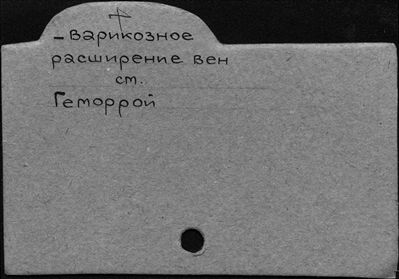 - варикозное
расширение вен
см.
Геморрой